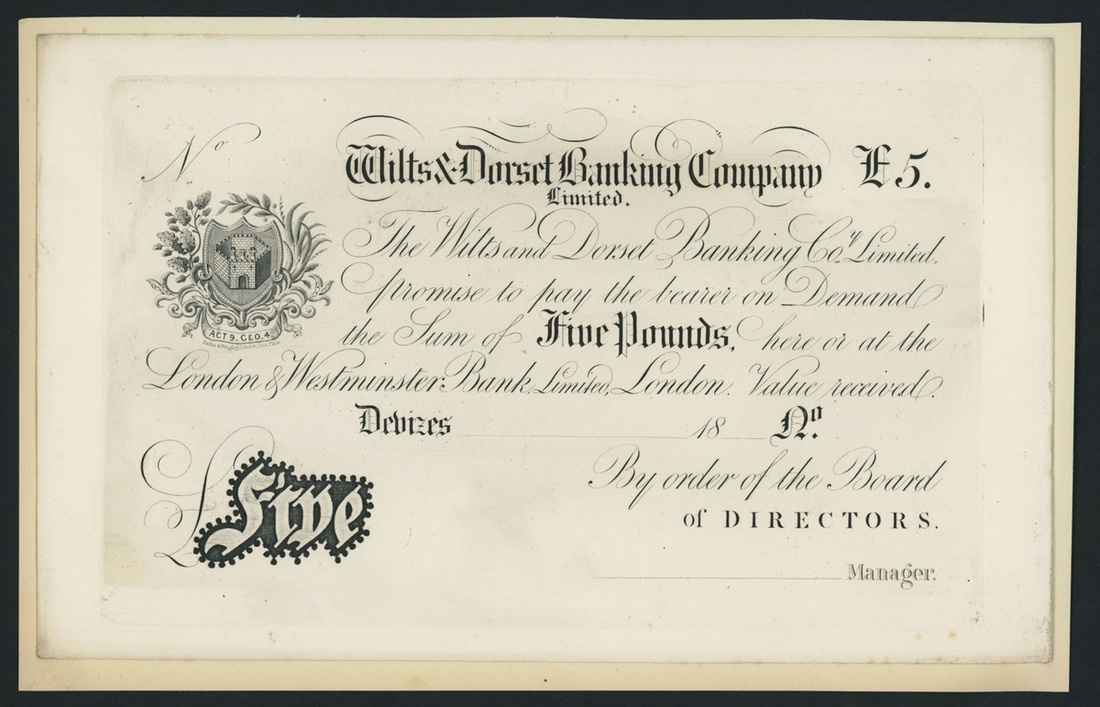 No
Wilts & Dorset Banking Company £5.
Limited.
The Wilts and Dorset Banking Coy. Limited,
promise to pay the bearer on Demand
the Sum of Five Pounds, here or at the
ACT 9. GEO. 4.
London & Westminster Bank, Limited, London. Value received.
Devizes 18 No.
£Five
By order of the Board
of DIRECTORS.
Manager.